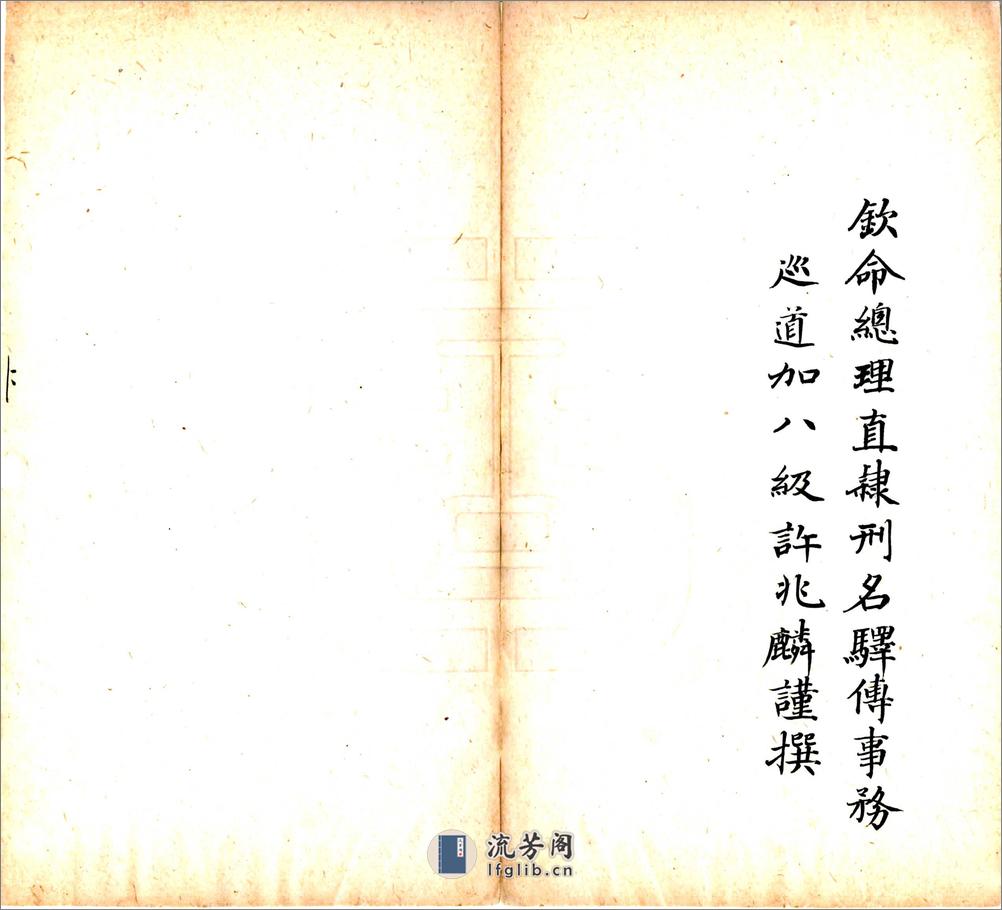 欽命總理直隸刑名驛傳事務
巡道加八級許兆麟謹撰
流芳阁
lfglib.cn